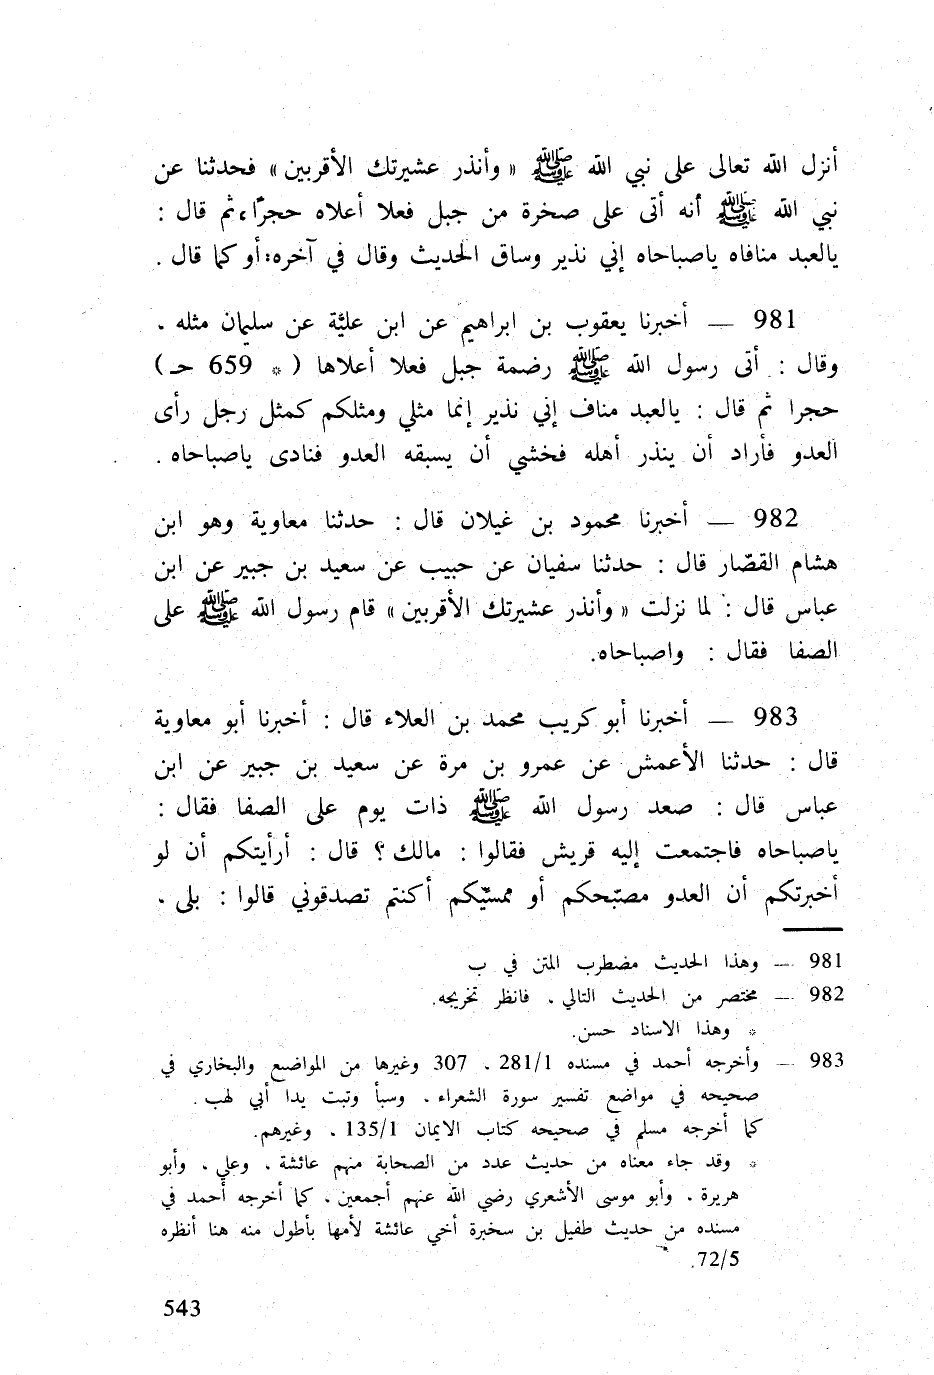 أنزل الله تعالى على نبي الله ﷺ « وأنذر عشيرتك الأقربين » فحدثنا عن
نبي الله ﷺ أنه أتى على صخرة من جبل فعلا أعلاه حجرًا، ثم قال :
يالعبد منافاه ياصباحاه إني نذير وساق الحديث وقال في آخره: أو كما قال .
981 — أخبرنا يعقوب بن ابراهيم عن ابن عليّة عن سليمان مثله .
وقال : أتى رسول الله ﷺ رضمة جبل فعلا أعلاها ( * 659 حـ )
حجرا ثم قال : يالعبد مناف إني نذير إنما مثلي ومثلكم كمثل رجل رأى
العدو فأراد أن ينذر أهله فخشي أن يسبقه العدو فنادى ياصباحاه .
982 — أخبرنا محمود بن غيلان قال : حدثنا معاوية وهو ابن
هشام القصّار قال : حدثنا سفيان عن حبيب عن سعيد بن جبير عن ابن
عباس قال : لما نزلت « وأنذر عشيرتك الأقربين » قام رسول الله ﷺ على
الصفا فقال : واصباحاه.
983 — أخبرنا أبو كريب محمد بن العلاء قال : أخبرنا أبو معاوية
قال : حدثنا الأعمش عن عمرو بن مرة عن سعيد بن جبير عن ابن
عباس قال : صعد رسول الله ﷺ ذات يوم على الصفا فقال :
ياصباحاه فاجتمعت إليه قريش فقالوا : مالك ؟ قال : أرأيتكم أن لو
أخبرتكم أن العدو مصبّحكم أو ممسيّكم أكنتم تصدقوني قالوا : بلى .
981 — وهذا الحديث مضطرب المتن في ب
982 — مختصر من الحديث التالي . فانظر تخريجه.
* وهذا الاسناد حسن.
983 — وأخرجه أحمد في مسنده 281/1 . 307 وغيرها من المواضع والبخاري في
صحيحه في مواضع تفسير سورة الشعراء . وسبأ وتبت يدا أبي لهب .
كما أخرجه مسلم في صحيحه كتاب الايمان 135/1 . وغيرهم.
* وقد جاء معناه من حديث عدد من الصحابة منهم عائشة . وعلي . وأبو
هريرة . وأبو موسى الأشعري رضي الله عنهم أجمعين . كما أخرجه أحمد في
مسنده من حديث طفيل بن سخبرة أخي عائشة لأمها بأطول منه هنا أنظره
72/5.
543